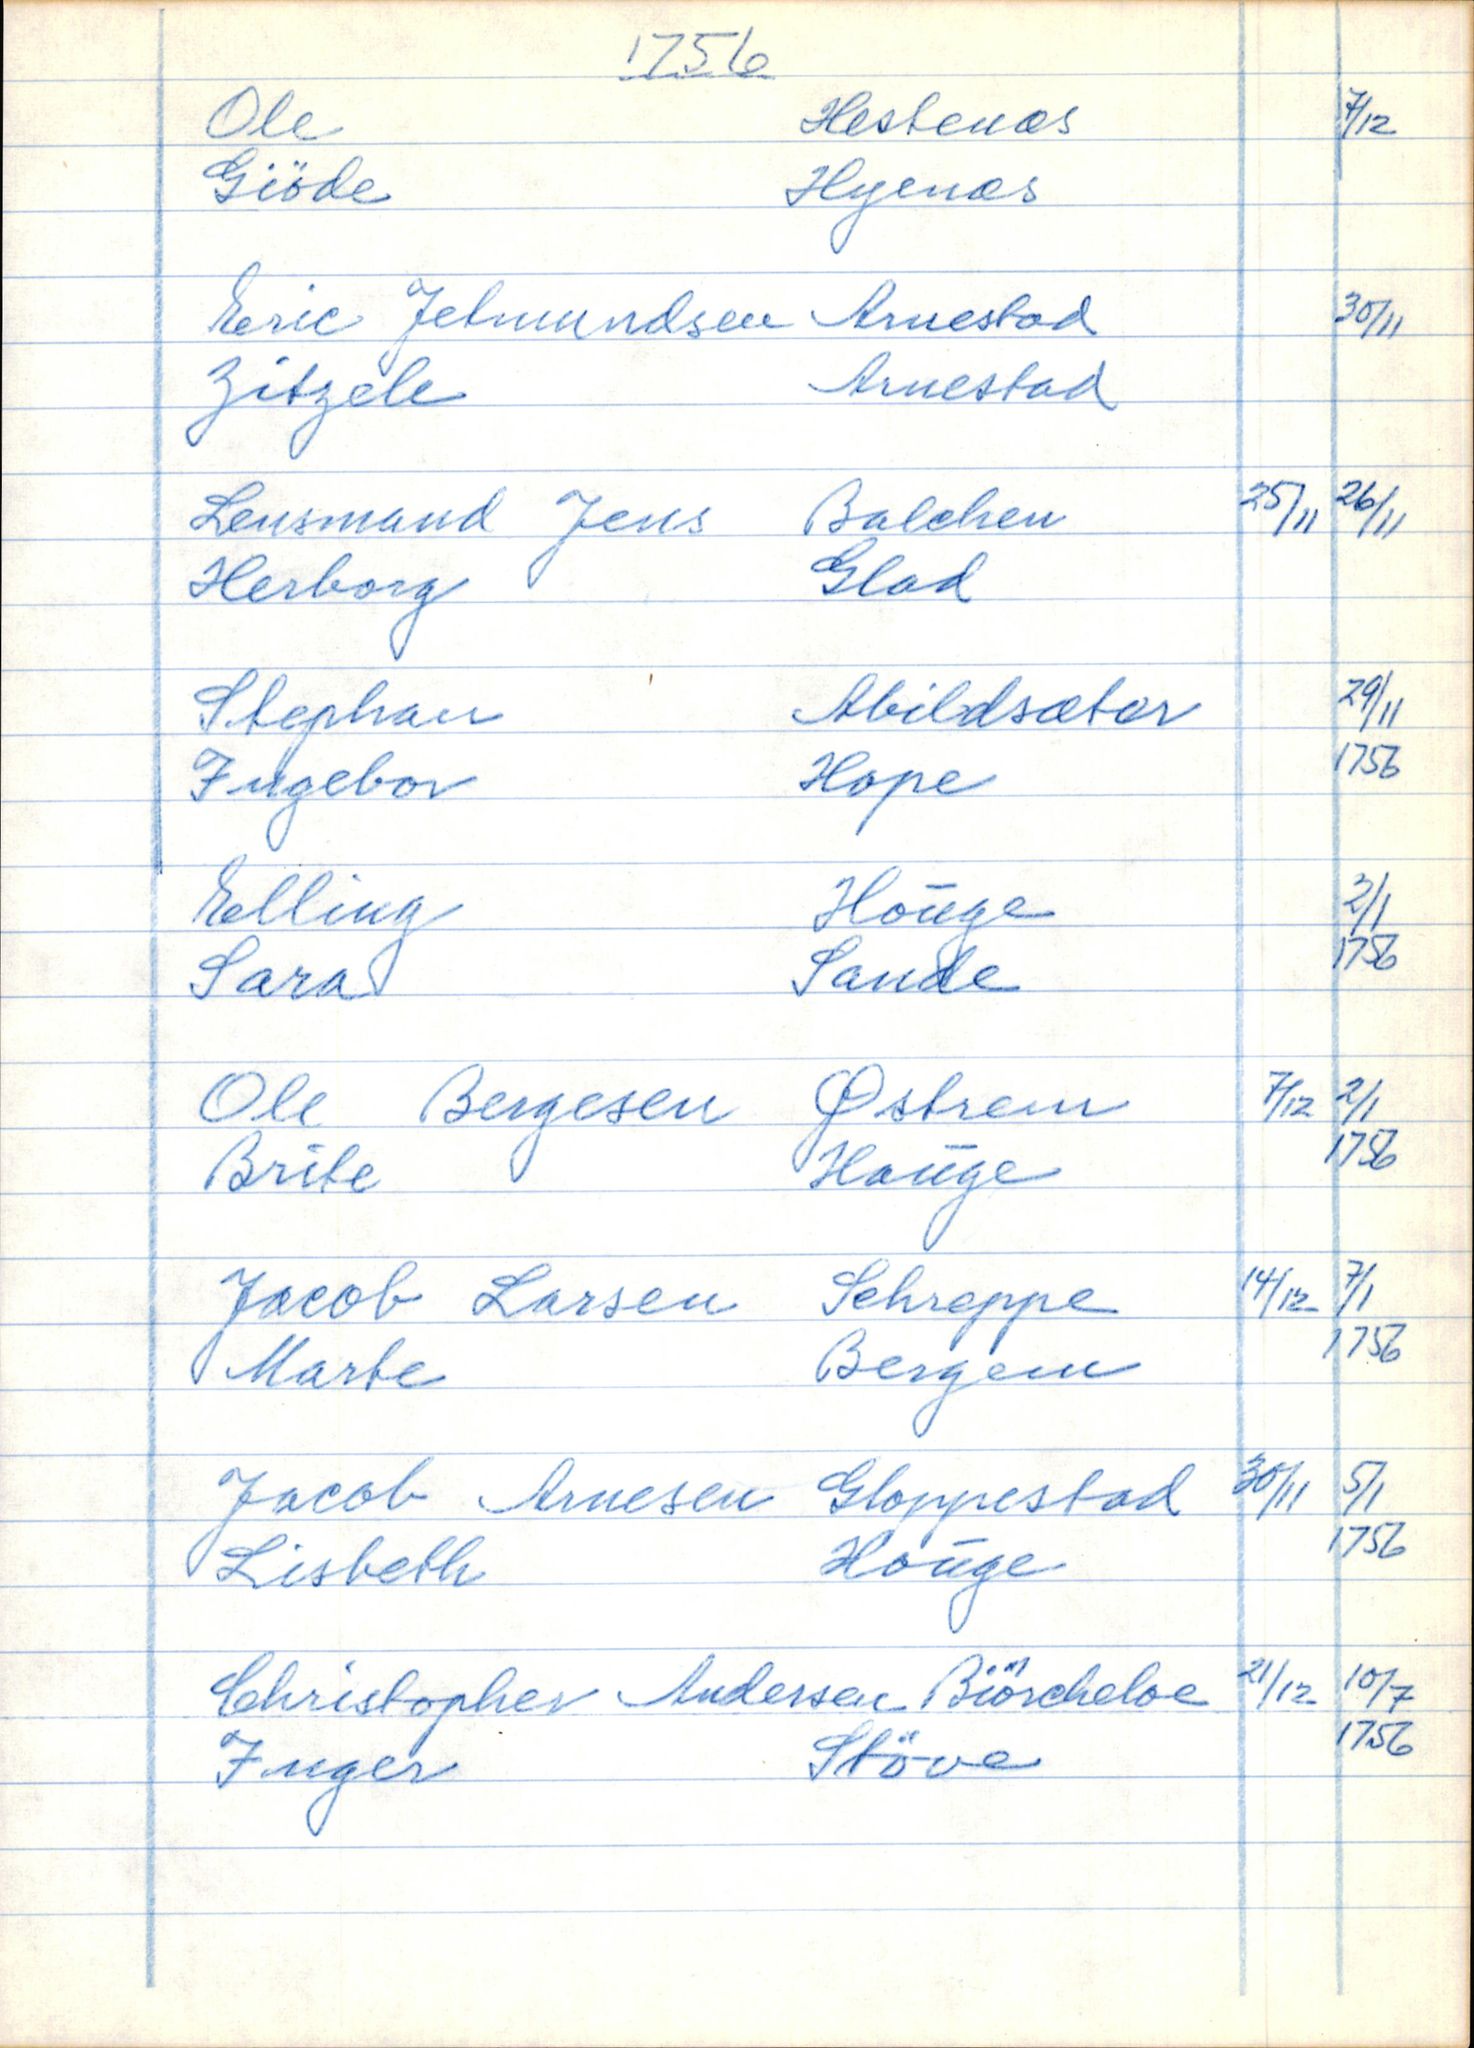 1756
Ole Hestenæs 7/12
Giöde Hyenæs
Eric Jetmundsen Arnestad 30/11
Zitzele Arnestad
Lensmand Jens Balchen 25/11 26/11
Herborg Glad
Stephan Abildsæter 29/11
Ingebor Hope 1756
Elling Hoūge 2/1
Sara Sande 1756
Ole Bergesen Østrem 7/12 2/1
Brite Haūge 1756
Jacob Larsen Schreppe 14/12 7/1
Marte Bergem 1756
Jacob Arnesen Gloppestad 30/11 5/1
Lisbeth Hoūge 1756
Christopher Andersen Biörcheloe 21/12 10/7
Inger Stöve 1756